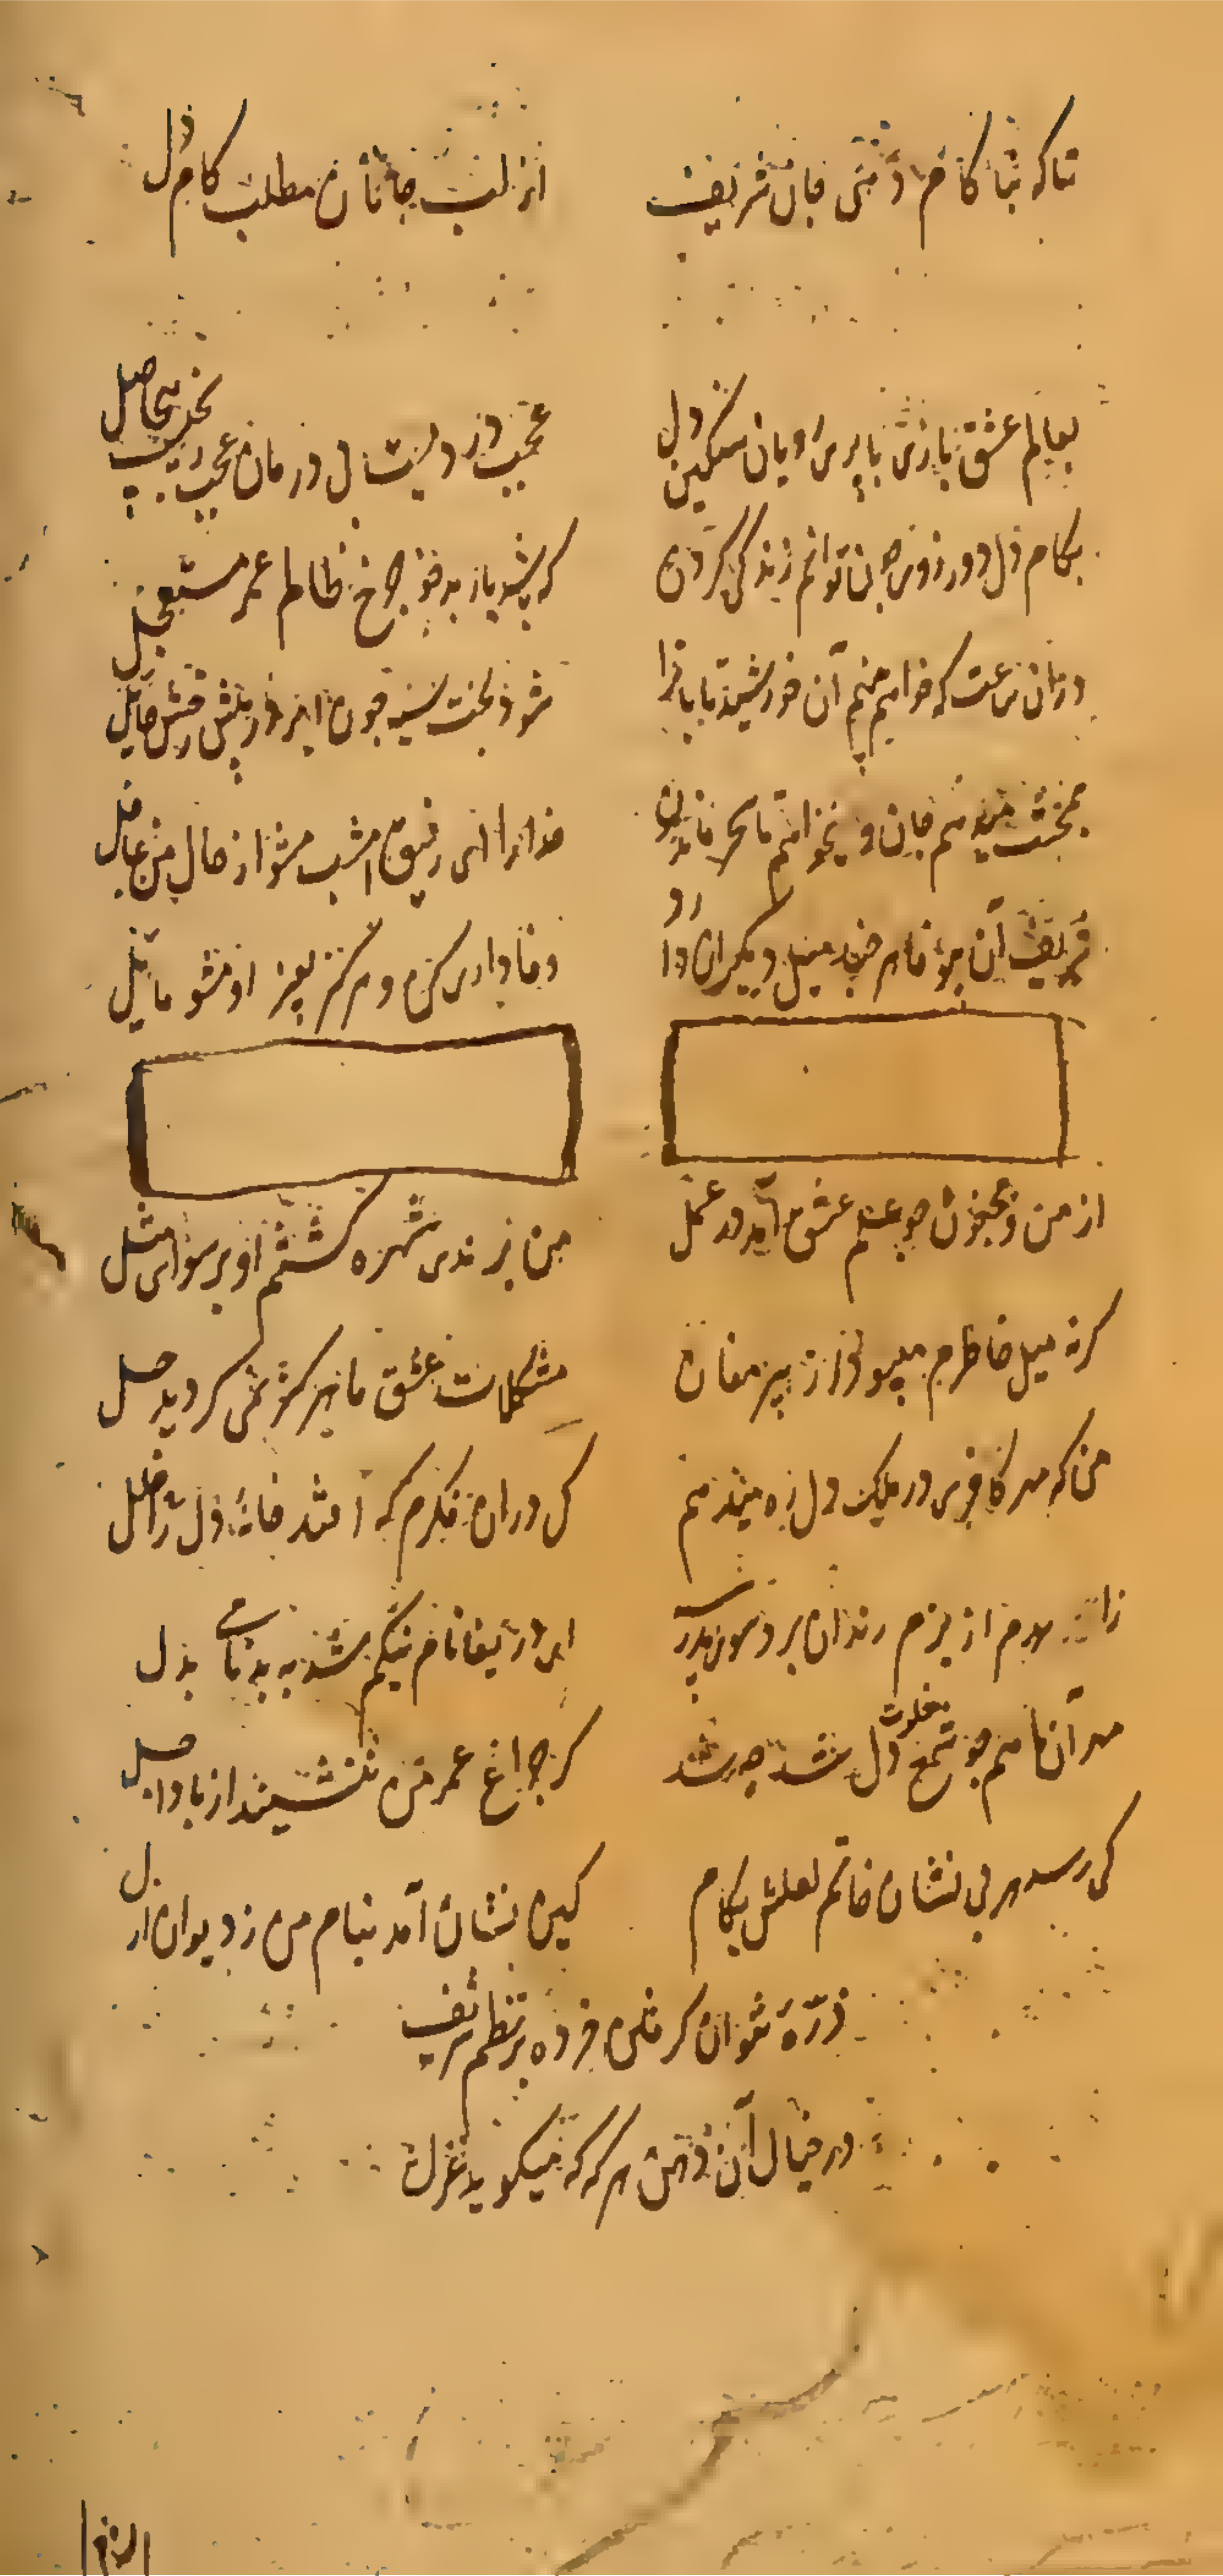 تاکه بنا کام دهی جان شریف
از لب جانان مطلب کام دل
بعالم عشق بازی با پری رویان سنگین دل
عجب دردیست درمان عجب
بکام دل دو روزی چون توانم زندگی کردن
که شد باز چرخ ظالم عمر مستعجل
در ان ساعت که خواهم بینم آن خورشید تابان را
شود بخت سیه چون ابر در پیش رخش حایل
میدهم جان و نخواهم تا سحر ماندن
خدا را ای رفیق امشب مشو از حال من غافل
شریف آن بیوفا هر چند میل دیگران دارد
وفاداری کن و هرگز بغیر او مشو مایل
از من و مجنون چو علم عشق آمد در عمل
من برندی شهره گشتم او برسوایی مثل
کرنه میل خاطرم از پیر مغان
مشکلات عشق ما هرگز نمی کردید حل
من که صد کافری در ملک دل ره میدهم
کی در ان فکرم که افتد خانه دل را خلل
از بزم رندان برد
ای دریغا نام نیکم شد به بدنامی بدل
صد آن ماهم چو شمع خلوت دل شد چه شد
کر چراغ عمر من ننشیند از باد اجل
کی رسد هر بی نشان خاتم لعلش بکام
کین نشان آمد بنام من ز دیوان ازل
ذره نتوان کرفتن خرده بر نظم شریف
در خیال آن دهن هر که که میکوید غزل